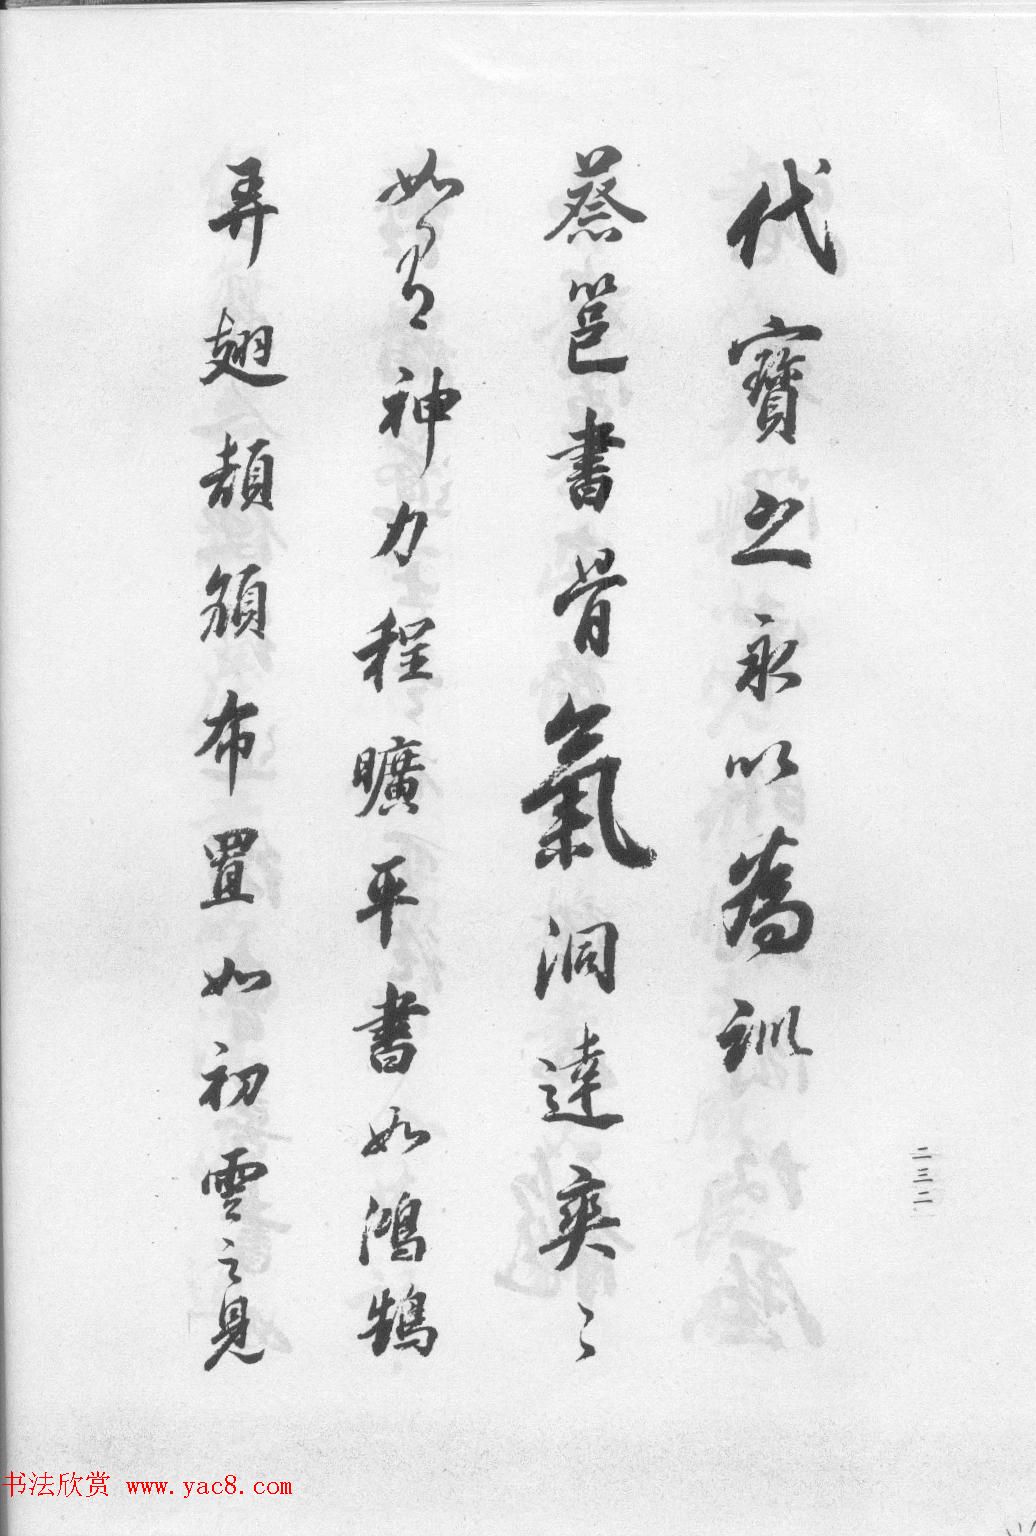 代寶之永以為訓
蔡邕書骨氣洞達爽〻
如有神力程曠平書如鴻鵠
弄翅頡頏布置如初雲之見
二三二
书法欣赏 www.yac8.com